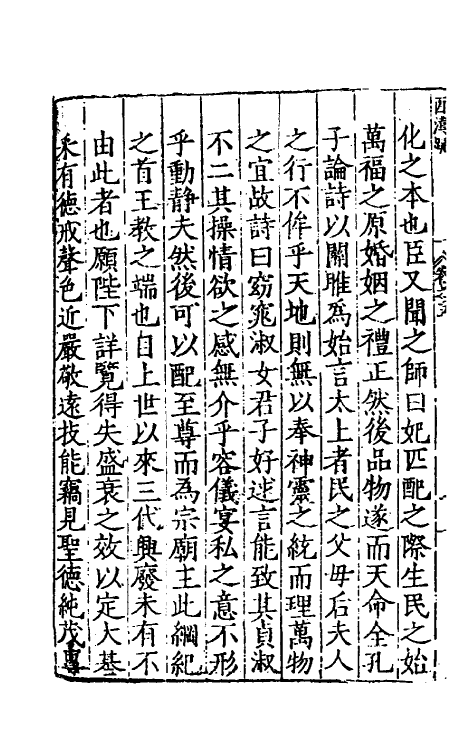 化之本也臣又聞之師曰妃匹配之際生民之始
萬福之原婚姻之禮正然後品物遂而天命全孔
子論詩以關雎爲始言太上者民之父母后夫人
之行不侔乎天地則無以奉神靈之統而理萬物
之宜故詩曰窈窕淑女君子好逑言能致其貞淑
不二其操情欲之感無介乎容儀宴私之意不形
乎動静夫然後可以配至尊而為宗廟主此綱紀
之首王教之端也自上世以來三代興廢未有不
由此者也願陛下詳覽得失盛衰之效以定大基
采有德戒聲色近嚴敬遠技能竊見聖德純茂專